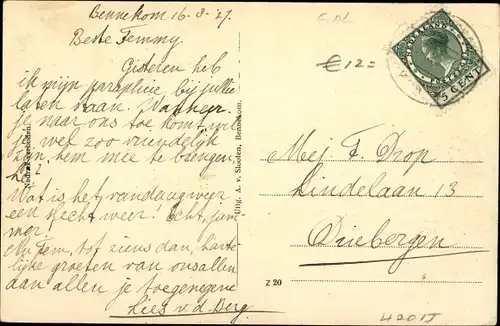 Bennekom 16-8-'27.
Beste Femmy.
Gisteren heb
ik mijn paraplui bij jullie
laten staan. Wanneer
je naar ons toe komt, wil
je wel zoo vriendelijk
zijn, hem mee te brengen,
hè!
Wat is het vandaag weer
een slecht weer! Echt jam
mer!
Nu Fem, tot ziens dan, harte
lijke groeten van ons allen
aan allen je toegenegene
Lies v. d. Berg.
Nadruk verboden.
Uitg. A. v. Slooten, Bennekom.
Z 20
€ 12=
NEDERLAND
5 CENT
Mej F. Drop
Lindelaan 13
Driebergen